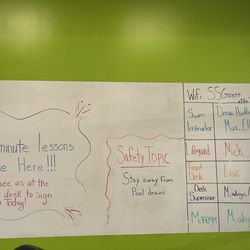 minute lessons
e Here!!!
see us at the
desk to sign
Today!
Safety Topic
Stay away from
Pool drains
Wifi SSGuest
Swim
Instructor
Max,
Lifeguard
Nick
Front
Desk
Luz
Deck
Supervisor
Manager